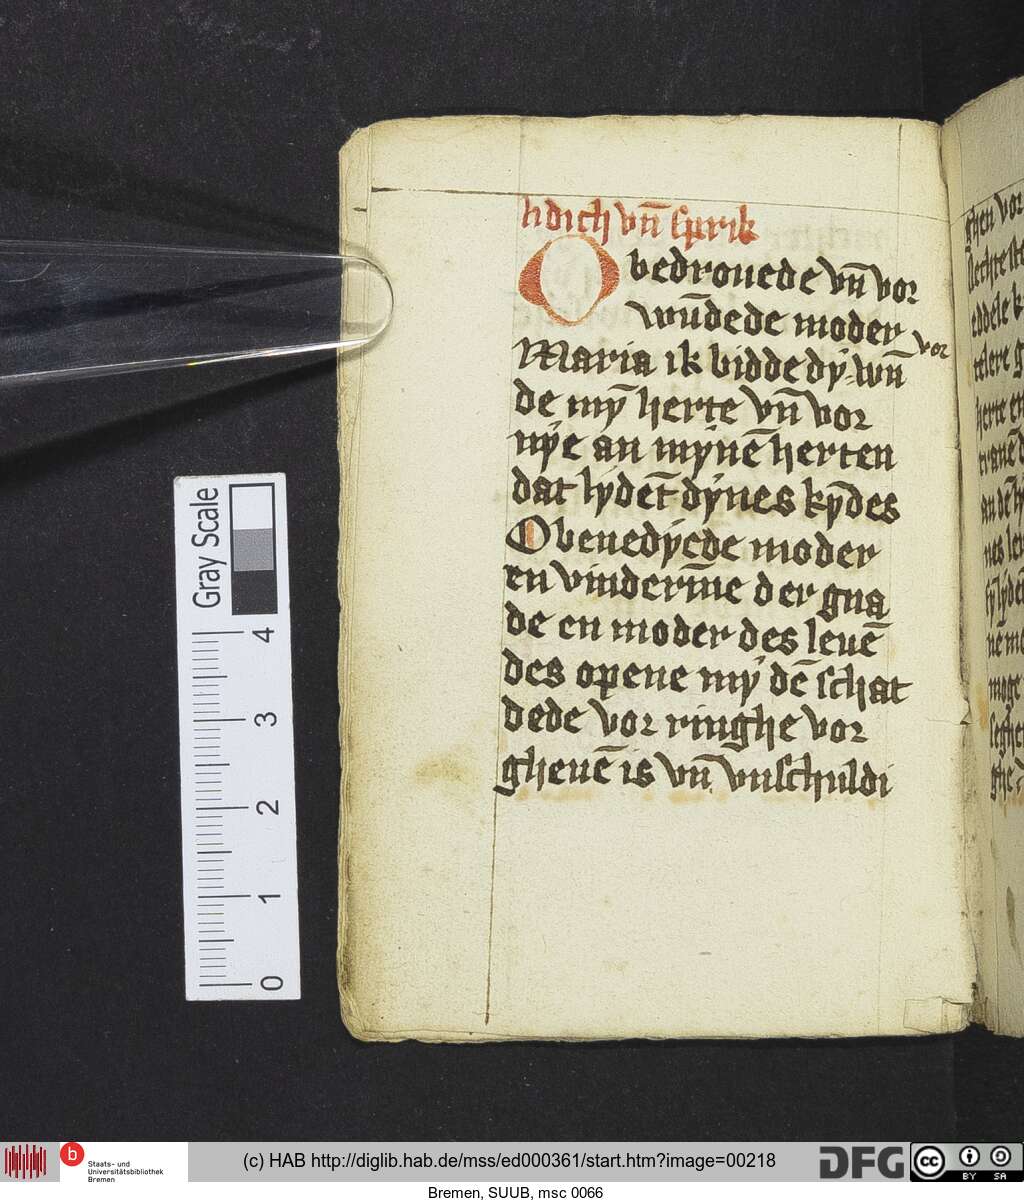 hdich vn̄ sprik
O bedrouede vn̄ vor
wūdede moder
Maria ik bidde dÿ wn̄ vor
de mȳ herte vn̄ vor
nÿe an mÿnē herten
dat lÿdēt dÿnes kȳdes
O benedÿede moder
en vinderīne der gna
de en moder des leuē
des opene mÿ dē schat
dede vor ringhe vor
gheuē is vn̄ vnschuldi
ghen vor
Gray Scale
4
3
2
1
0
b Staats- und
Universitätsbibliothek
Bremen
(c) HAB http://diglib.hab.de/mss/ed000361/start.htm?image=00218
DFG
cc BY SA
Bremen, SUUB, msc 0066